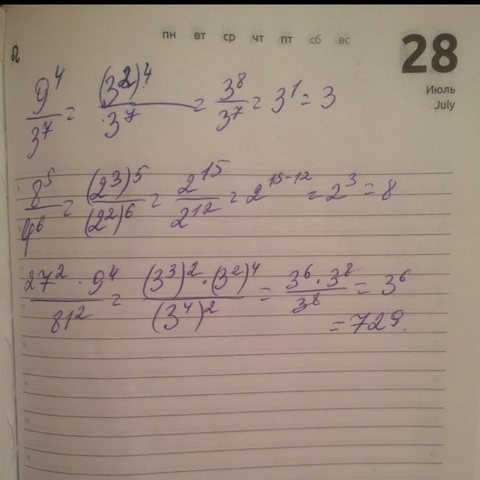 пн вт ср чт пт сб вс
28
Июль
July
9^4/3^7 = (3^2)^4/3^7 = 3^8/3^7 = 3^1 = 3
8^5/4^6 = (2^3)^5/(2^2)^6 = 2^15/2^12 = 2^15-12 = 2^3 = 8
27^2 · 9^4/81^2 = (3^3)^2 · (3^2)^4/(3^4)^2 = 3^6 · 3^8/3^8 = 3^6
= 729.